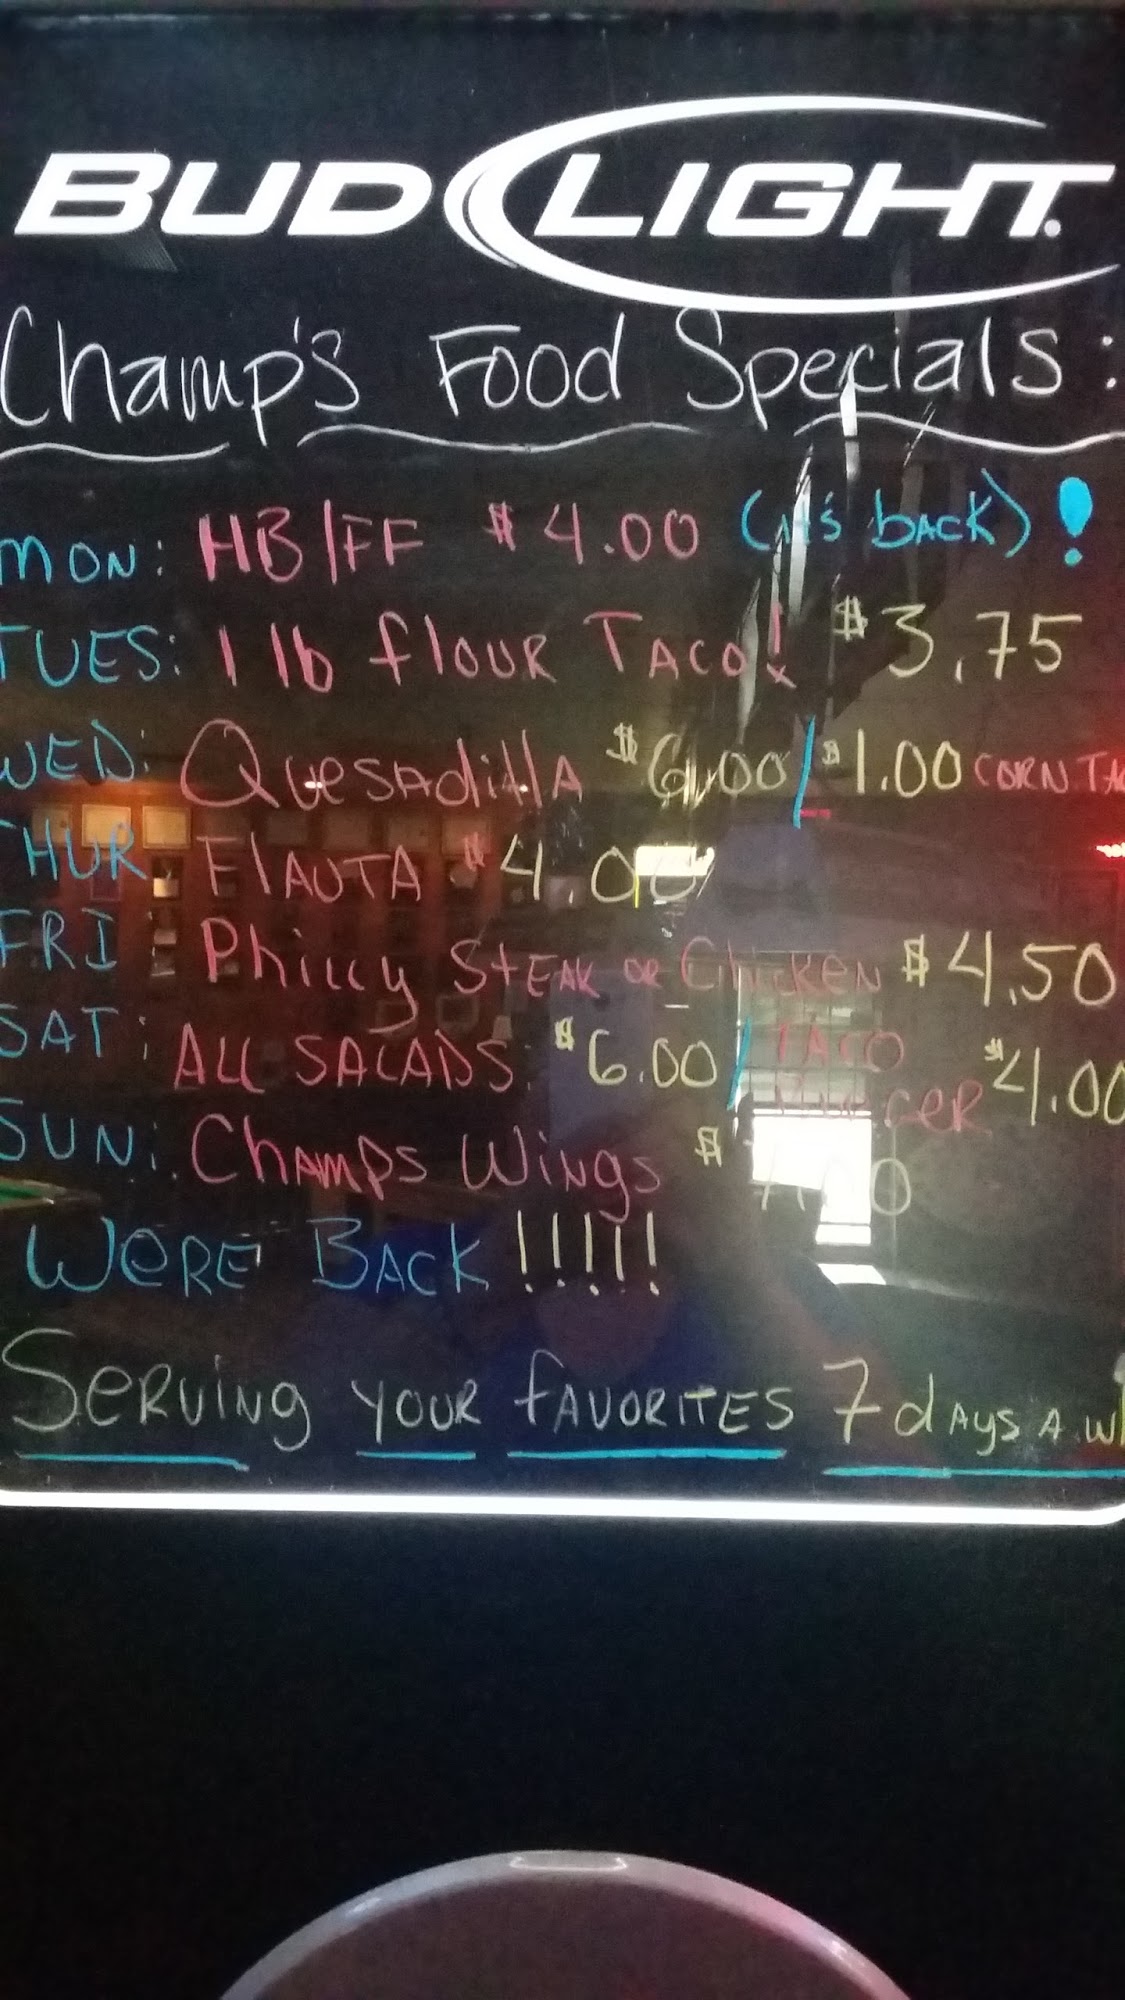 BUD LIGHT.
Champ's Food Specials:
MON: HB/FF $4.00 (it's back)!
TUES: 1 lb flour Taco! $3.75
WED: Quesadilla $6.00/$1.00 CORN
THUR Flauta $4.00
FRI: Philly Steak or Chicken $4.50
SAT: All Salads $6.00/Taco Burger $4.00
SUN: Champs Wings $
Were Back!!!!!
Serving your favorites 7 days a